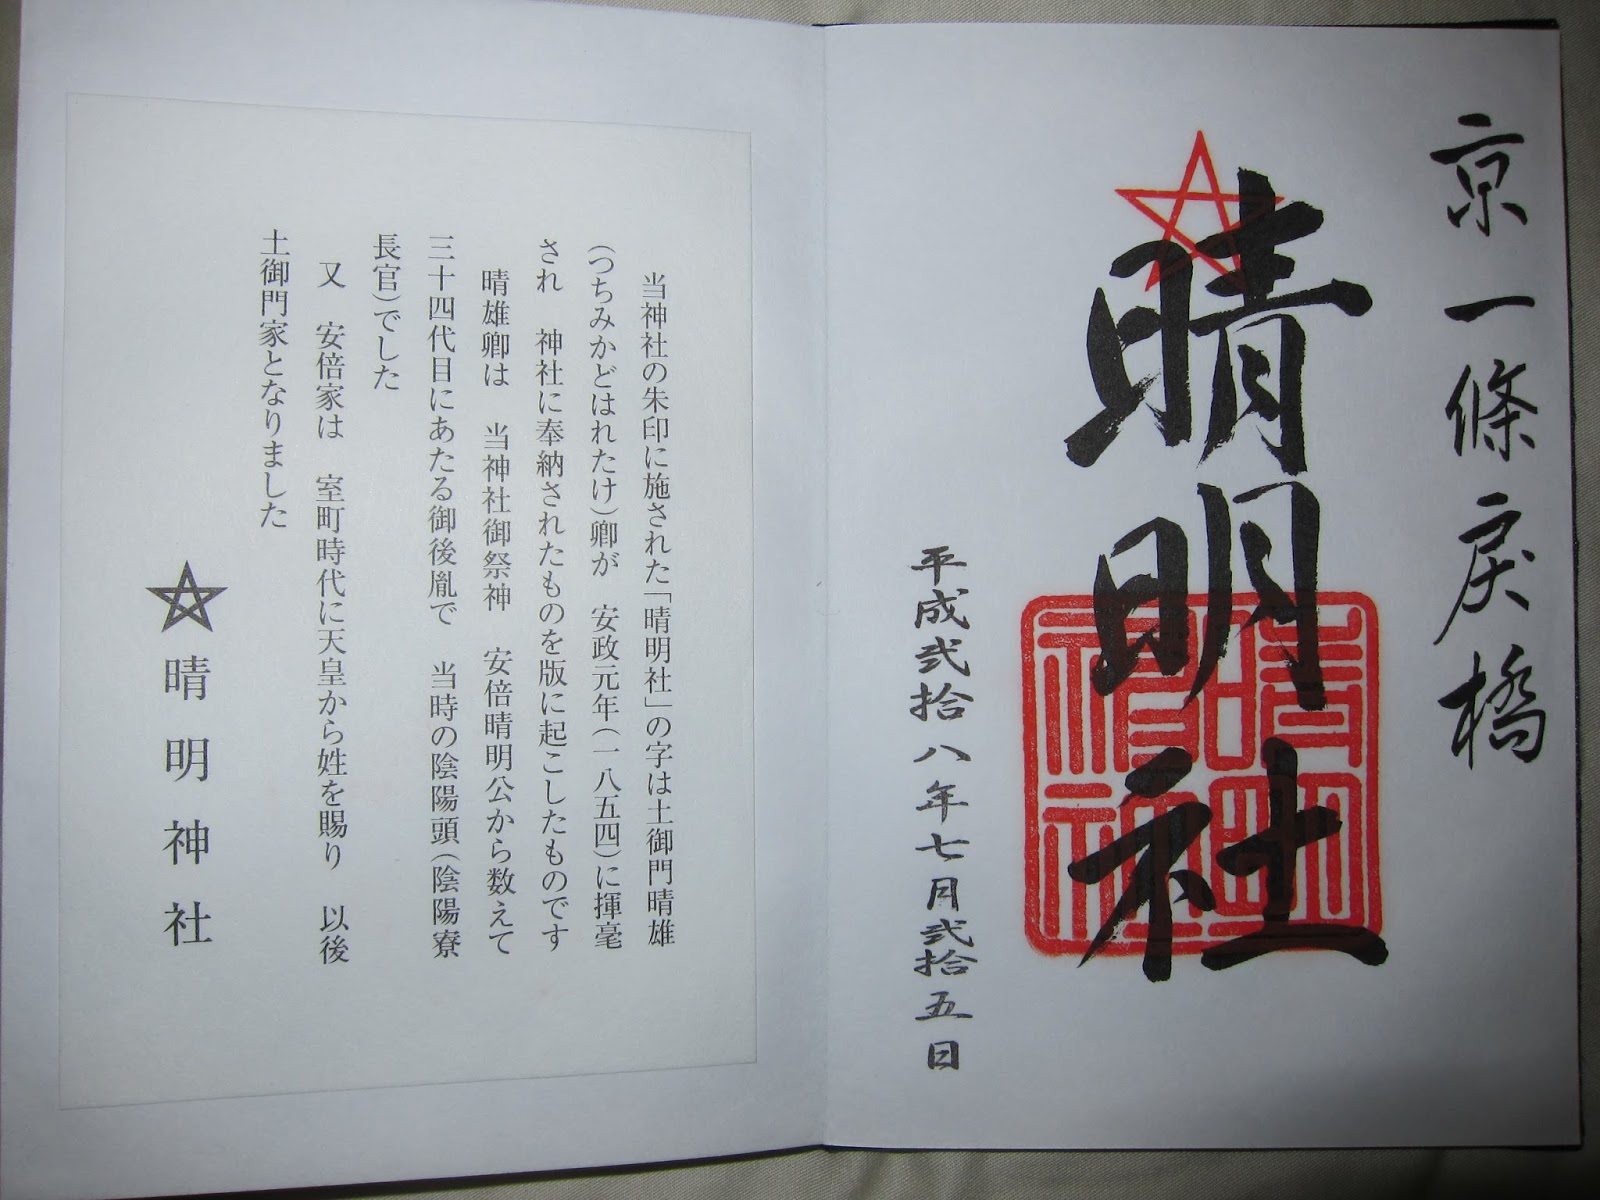 京一條戻橋
晴明社
晴明神社
平成弐拾八年七月弐拾五日
当神社の朱印に施された「晴明社」の字は土御門晴雄
(つちみかどはれたけ)卿が　安政元年(一八五四)に揮毫
され　神社に奉納されたものを版に起こしたものです
晴雄卿は　当神社御祭神　安倍晴明公から数えて
三十四代目にあたる御後胤で　当時の陰陽頭(陰陽寮
長官)でした
又　安倍家は　室町時代に天皇から姓を賜り　以後
土御門家となりました
晴明神社